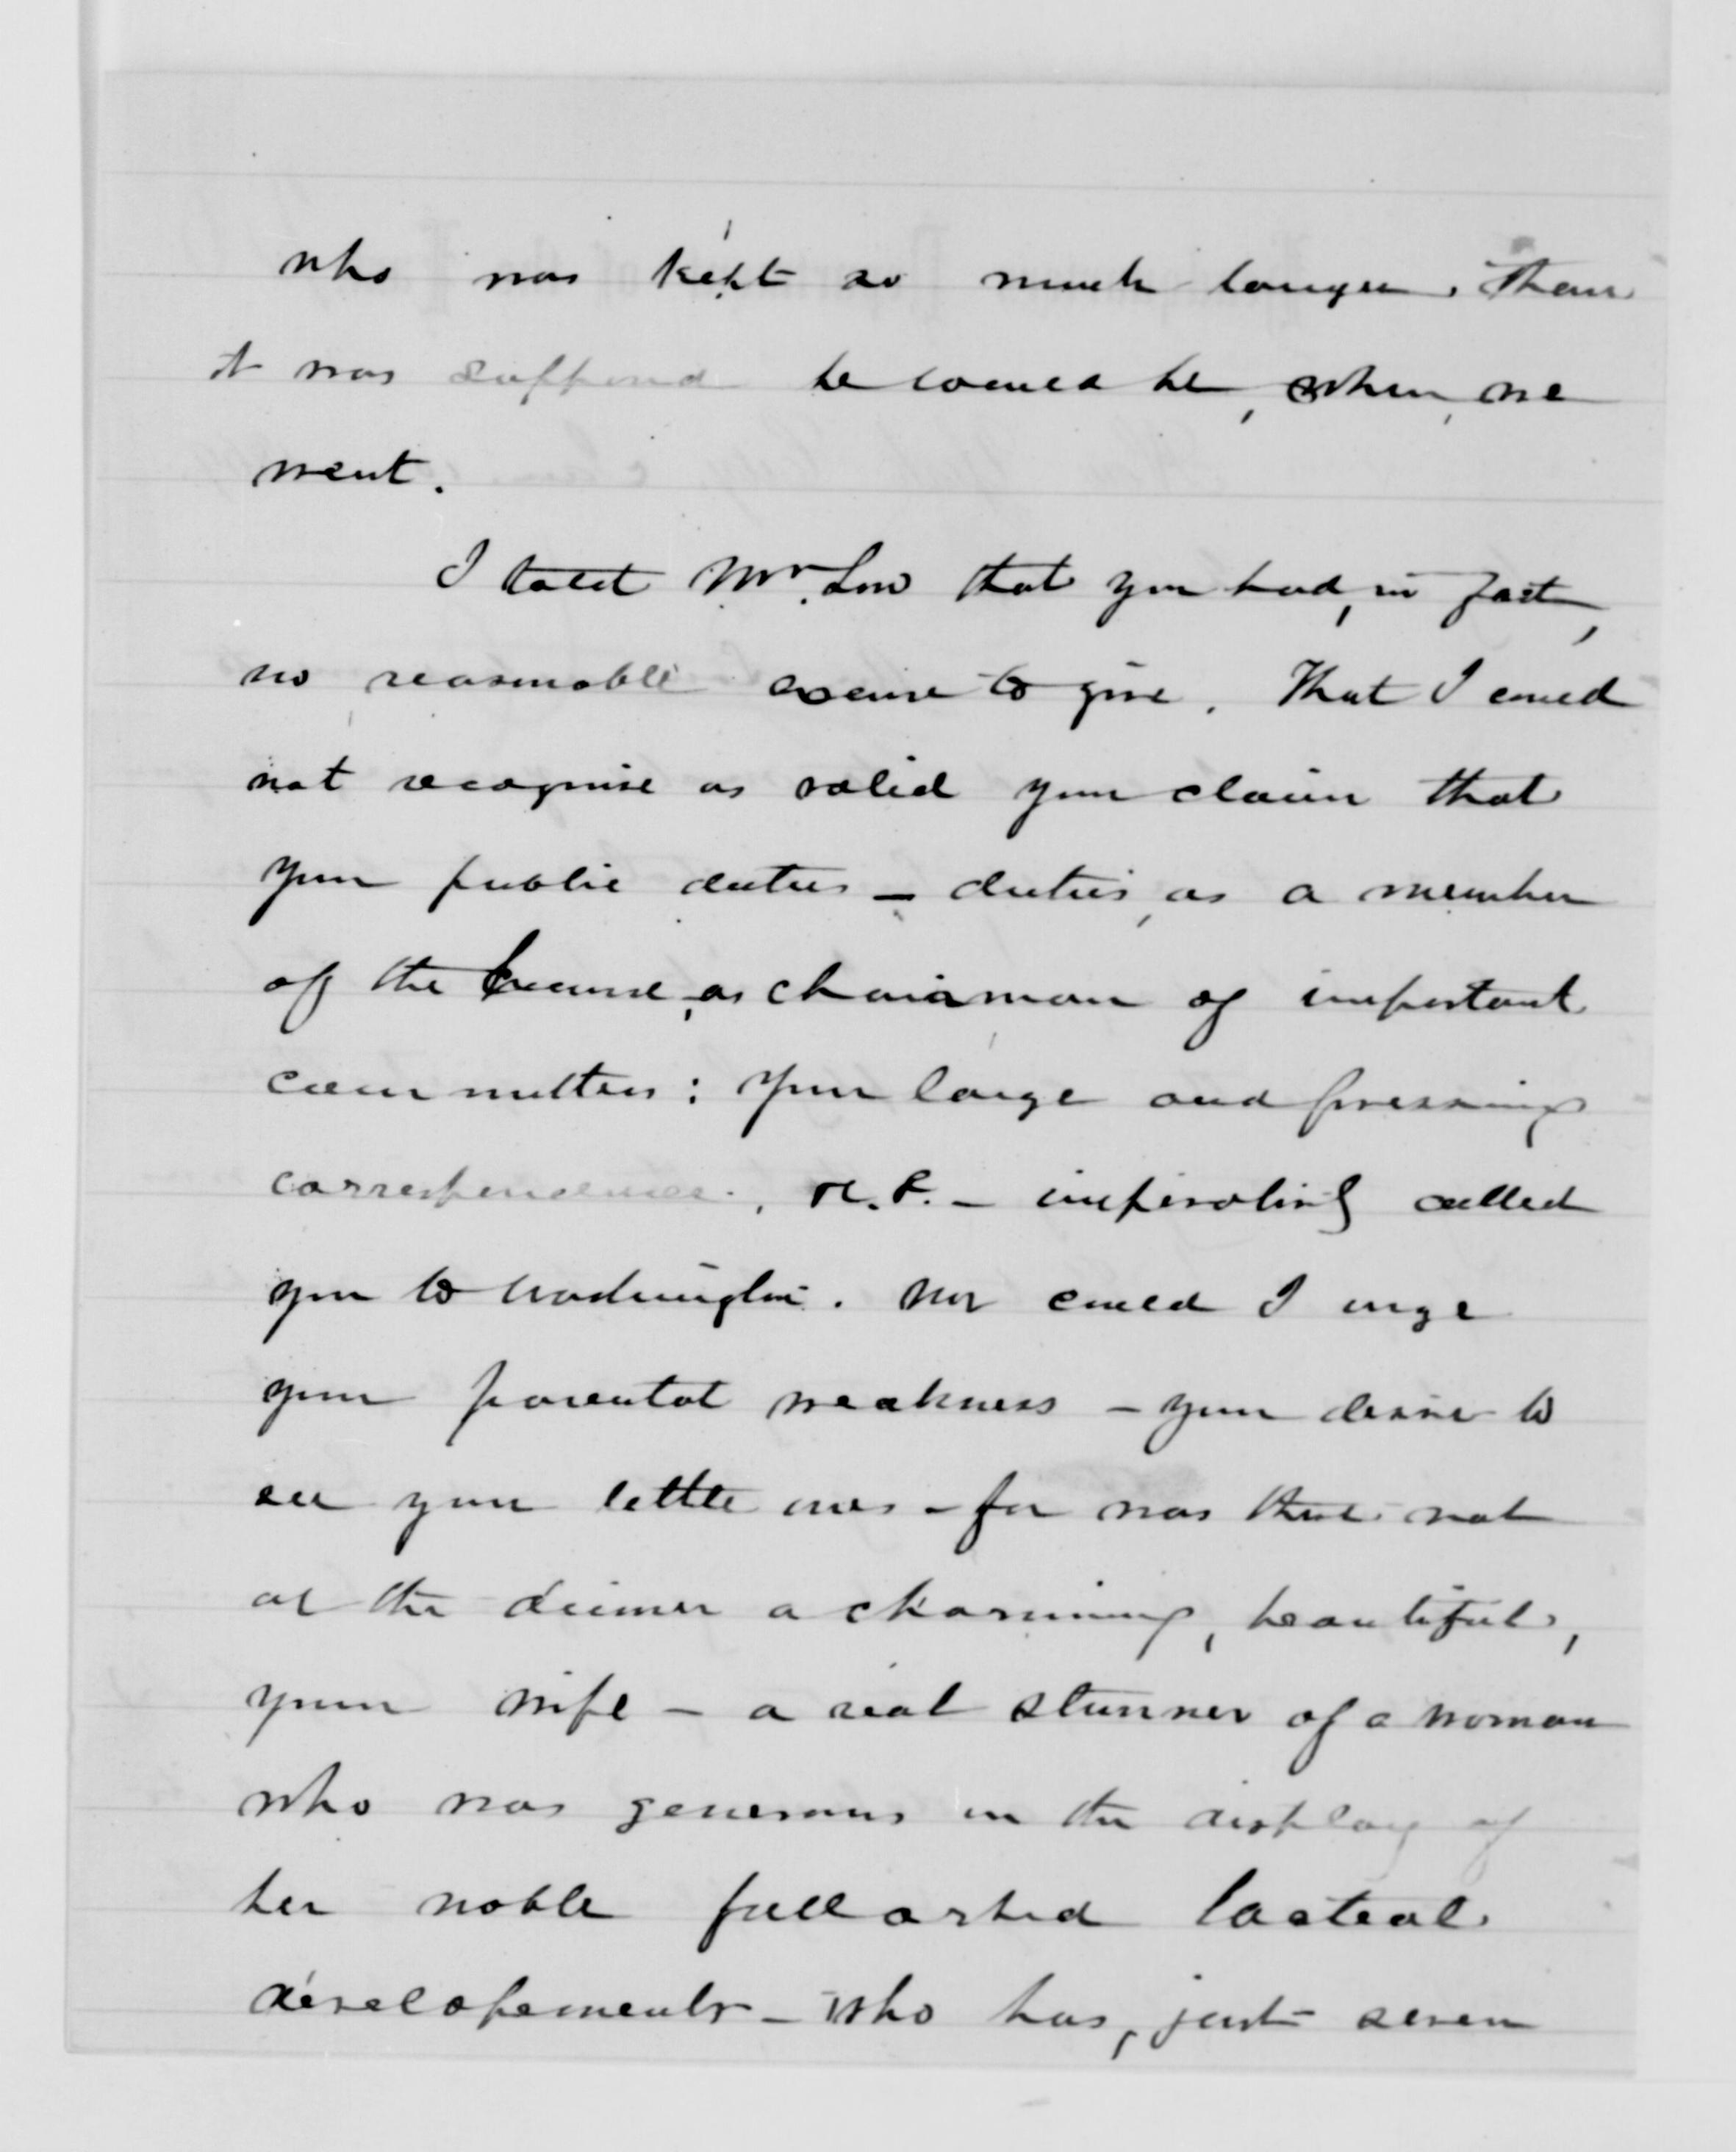 who was kept so much longer, than
it was supposed he would be, when, we
went.
I told Mr. Low that you had, in fact,
no reasonable excuse to give. That I could
not recognise as valid your claim that
your public duties – duties, as a member
of the house, as chairman of important
committees: your large and pressing
correspondence, &c. &c. – imperatively called
you to Washington. Nor could I urge
your parental weakness – your desire to
see your little ones – for was there not
at the dinner a charming, beautiful,
young wife – a real stunner of a woman
who was generous in the display of
her noble full orbed lacteal
developements – who has, just seven